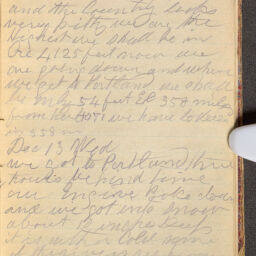 and the Country looks
very pretty we are the
highest we shall be in
are 4125 feet now we
are going down and when
we get to Portland we shall
be only 54 feet El 358 miles
from her 4071 we have to
in 358 m
Dec 13 Wed
we got to Portland three
hours behind time
our Engine Broke down
and we got into snow
about 8 inches deep
it is such a Cold